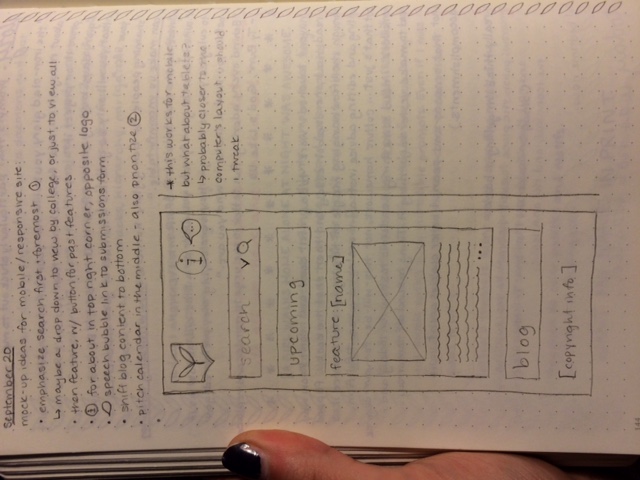 September 20
mock-up ideas for mobile/responsive site:
• emphasize search first + foremost ①
↳ maybe a drop down to new by college, or just to view all
• then feature, w/ button for past features
• ⓘ for about in top right corner, opposite logo
• speech bubble link to submissions form
• shift blog content to bottom
• pitch calendar in the middle - also prioritize ②
•
i
search
upcoming
feature: [name]
...
blog
[copyright info]
* this works for mobile
but what about tablets?
↳ probably closer to the
computer's layout. should
i tweak
144